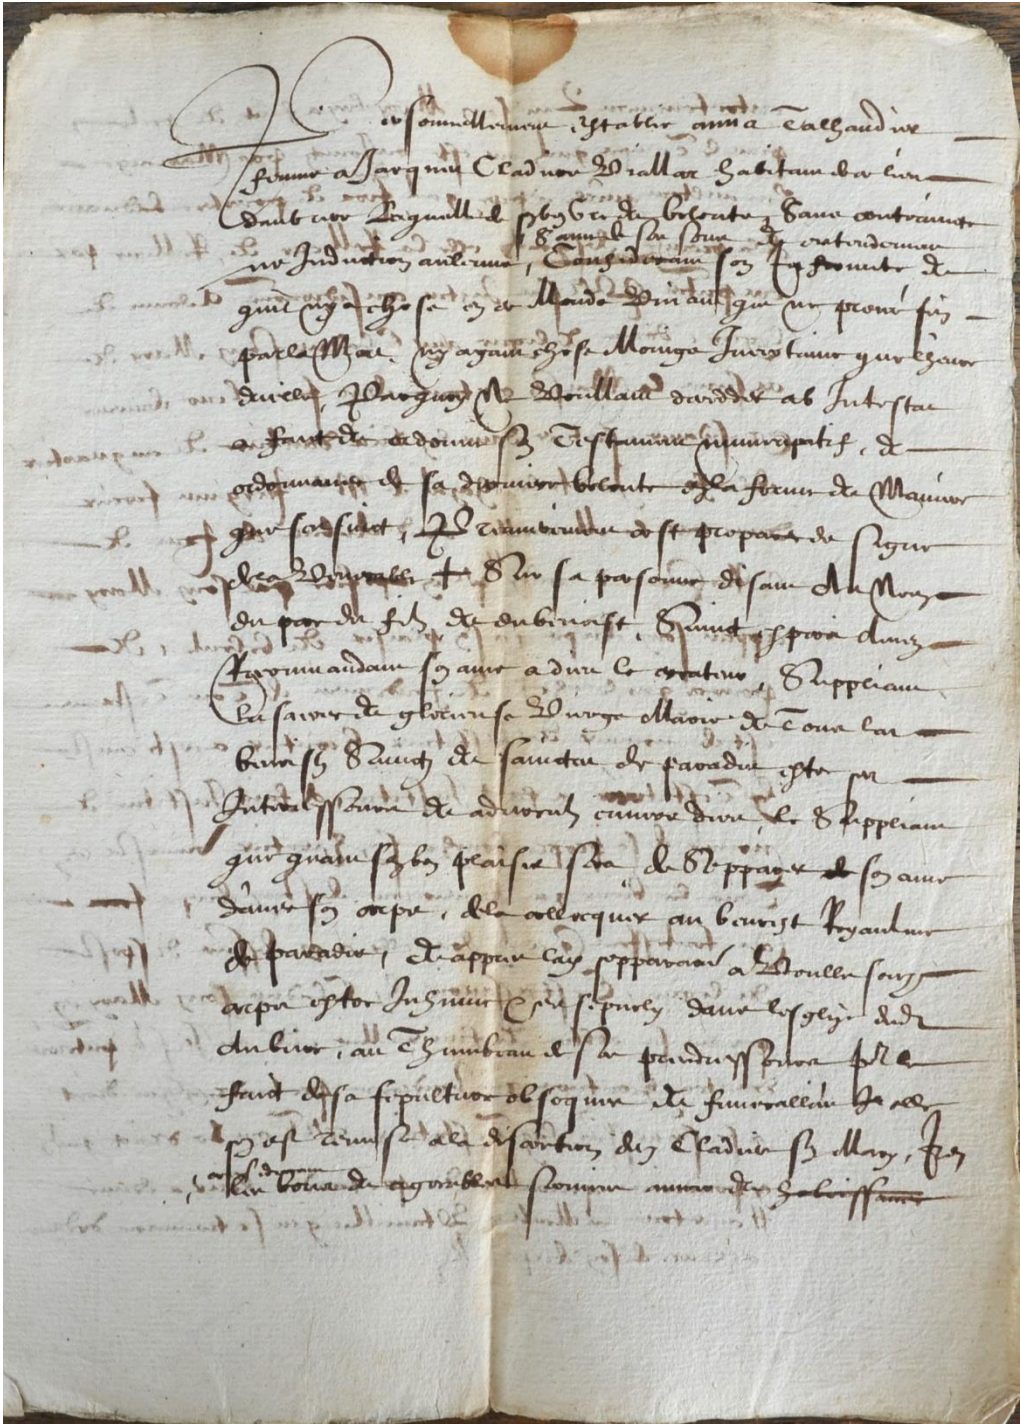 Personnellement establie anna Talhandier
femme a Jacques Cladiere Viallar habitant de ce lieu
daubiere laquelle de son gre de volente Sans contraincte
Sainne de ses sens de entendement
ne Induction aulcune, Considerant son Infirmite de
quil ny a chose en ce Monde Vivant que ne preine fin
par la Mort, ny ayant chose Moings Incertaine que l'heure
dicelle, Parquoy Ne Voullant decedder ab Intestat
a faict de ordonne son Testament nuncupatif, de
ordonnance de sa derniere volente en la forme de Maniere
que sensuict, Premierement cest propare de signe
de la Venerable + Sur sa personne disant Au Nom
du pere du filz de du benoist Sainct esperit Amen
Recommandant son ame a dieu le createur, Suppliant
la sacree de glorieuse Vierge Marie de Tous les
benoistz Sainctz de sainctes de paradis estre ses
Intercesseurs de advocatz envers dieu, le Suppliant
que quant son bon plaisir sera de Seppager de son ame
davec son corps, de la collocquer au benoist Royaulme
de paradis, de appres lad separation a Voullu sond
corps estre Inhume de sepvely dans lesglize dud
Aubiere, au Thumbeau de ses predecesseurs pour le
faict de sa sepulture obseques de funerallies Icelle
sen est remise a la discretion dud Cladiere son Mary, Item
les bons de agreables services